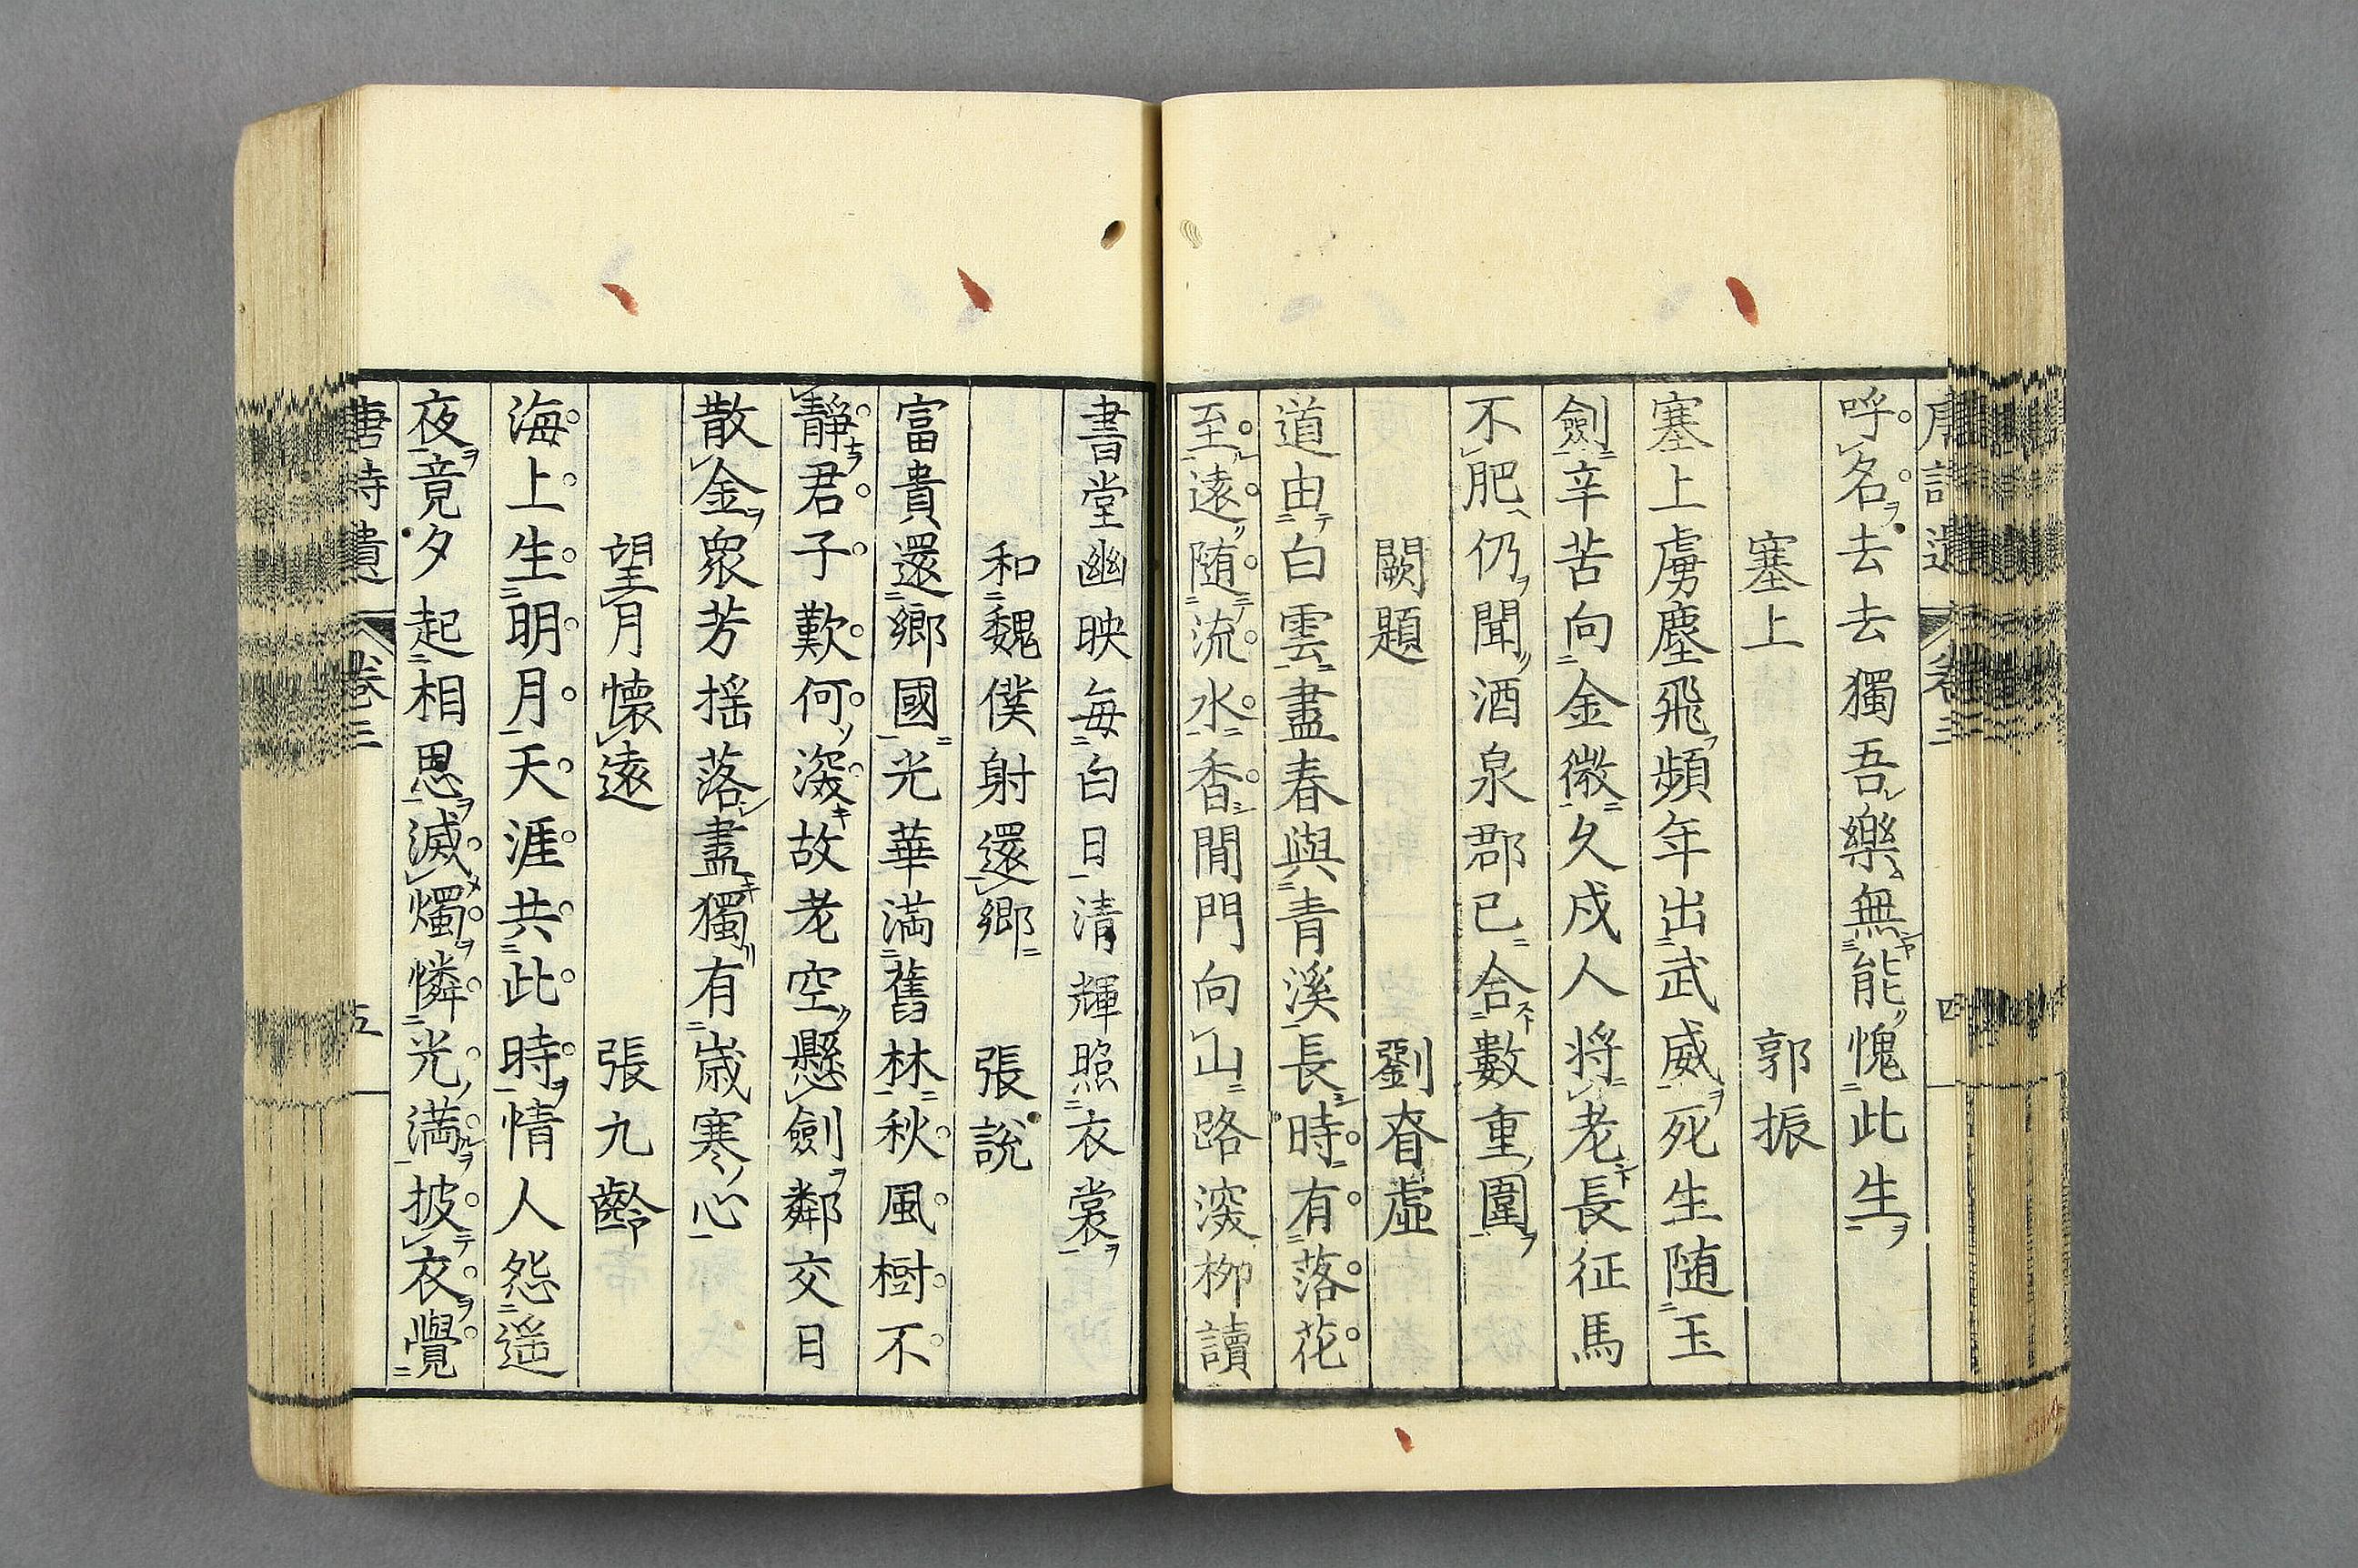 呼名去去獨吾樂無能愧此生
塞上 郭振
塞上虜塵飛頻年出武威死生随玉
劍辛苦向金微久戍人将老長征馬
不肥仍聞酒泉郡已合數重圍
闕題 劉眘虛
道由白雲盡春與青溪長時有落花
至遠随流水香閒門向山路深柳讀
書堂幽映每白日清輝照衣裳
和魏僕射還鄉 張說
富貴還鄉國光華満舊林秋風樹不
靜君子歎何深故老空懸劍鄰交日
散金衆芳揺落盡獨有嵗寒心
望月懐遠 張九齡
海上生明月天涯共此時情人怨遥
夜竟夕起相思滅燭憐光満披衣覺
唐詩遺 卷三 五